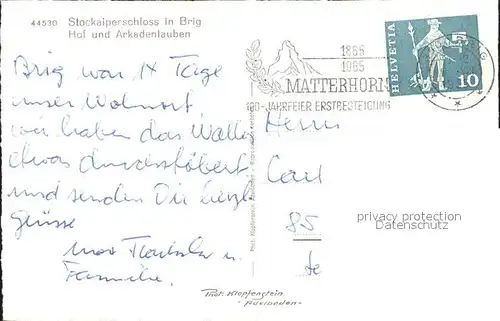 44530 Stockalperschloss in Brig
Hof und Arkadenlauben
1865
1965
MATTERHORN
100-JAHRFEIER ERSTBESTEIGUNG
HELVETIA
5
10
Brig war 14 Tage
unser Wohnort
wir haben das Wallis
etwas durchstöbert
und senden Dir herzl.
Grüsse
Max u.
Familie.
Herrn
Carl
85
privacy protection
Datenschutz
Phot. Klopfenstein
- Adelboden -